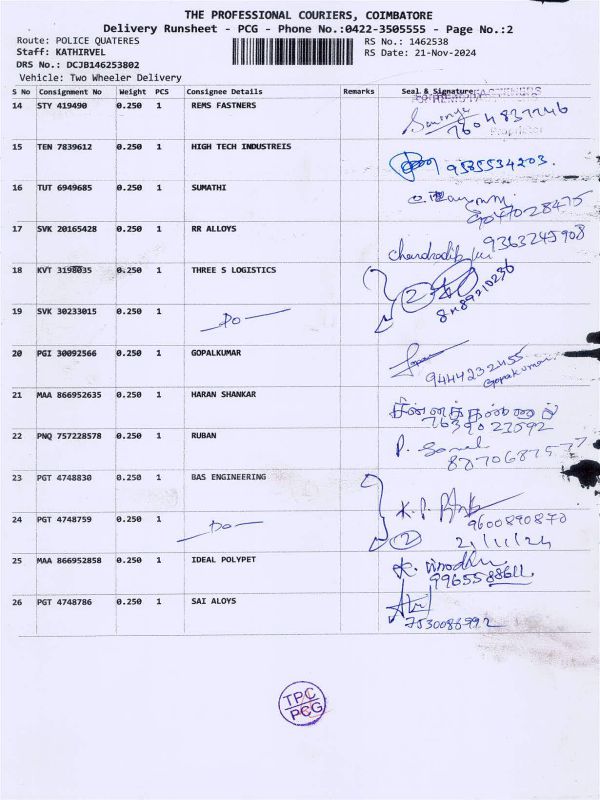 THE PROFESSIONAL COURIERS, COIMBATORE
Delivery Runsheet - PCG - Phone No.:0422-3505555 - Page No.:2
Route: POLICE QUATERES RS No.: 1462538
Staff: KATHIRVEL RS Date: 21-Nov-2024
DRS No.: DCJB146253802
Vehicle: Two Wheeler Delivery
S No Consignment No Weight PCS Consignee Details Remarks Seal & Signature
14 STY 419490 0.250 1 REMS FASTNERS
Proprietor
15 TEN 7839612 0.250 1 HIGH TECH INDUSTREIS 9585534203.
16 TUT 6949685 0.250 1 SUMATHI
17 SVK 20165428 0.250 1 RR ALLOYS 9363245908
18 KVT 3198035 0.250 1 THREE S LOGISTICS 2
19 SVK 30233015 0.250 1 -Do-
20 PGI 30092566 0.250 1 GOPALKUMAR 9444232455
Gopakumar
21 MAA 866952635 0.250 1 HARAN SHANKAR
22 PNQ 757228578 0.250 1 RUBAN
23 PGT 4748830 0.250 1 BAS ENGINEERING
9600890870
24 PGT 4748759 0.250 1 -Do- 2 21/11/24
25 MAA 866952858 0.250 1 IDEAL POLYPET
9965588611
26 PGT 4748786 0.250 1 SAI ALOYS
7530086992
TPC
PCG